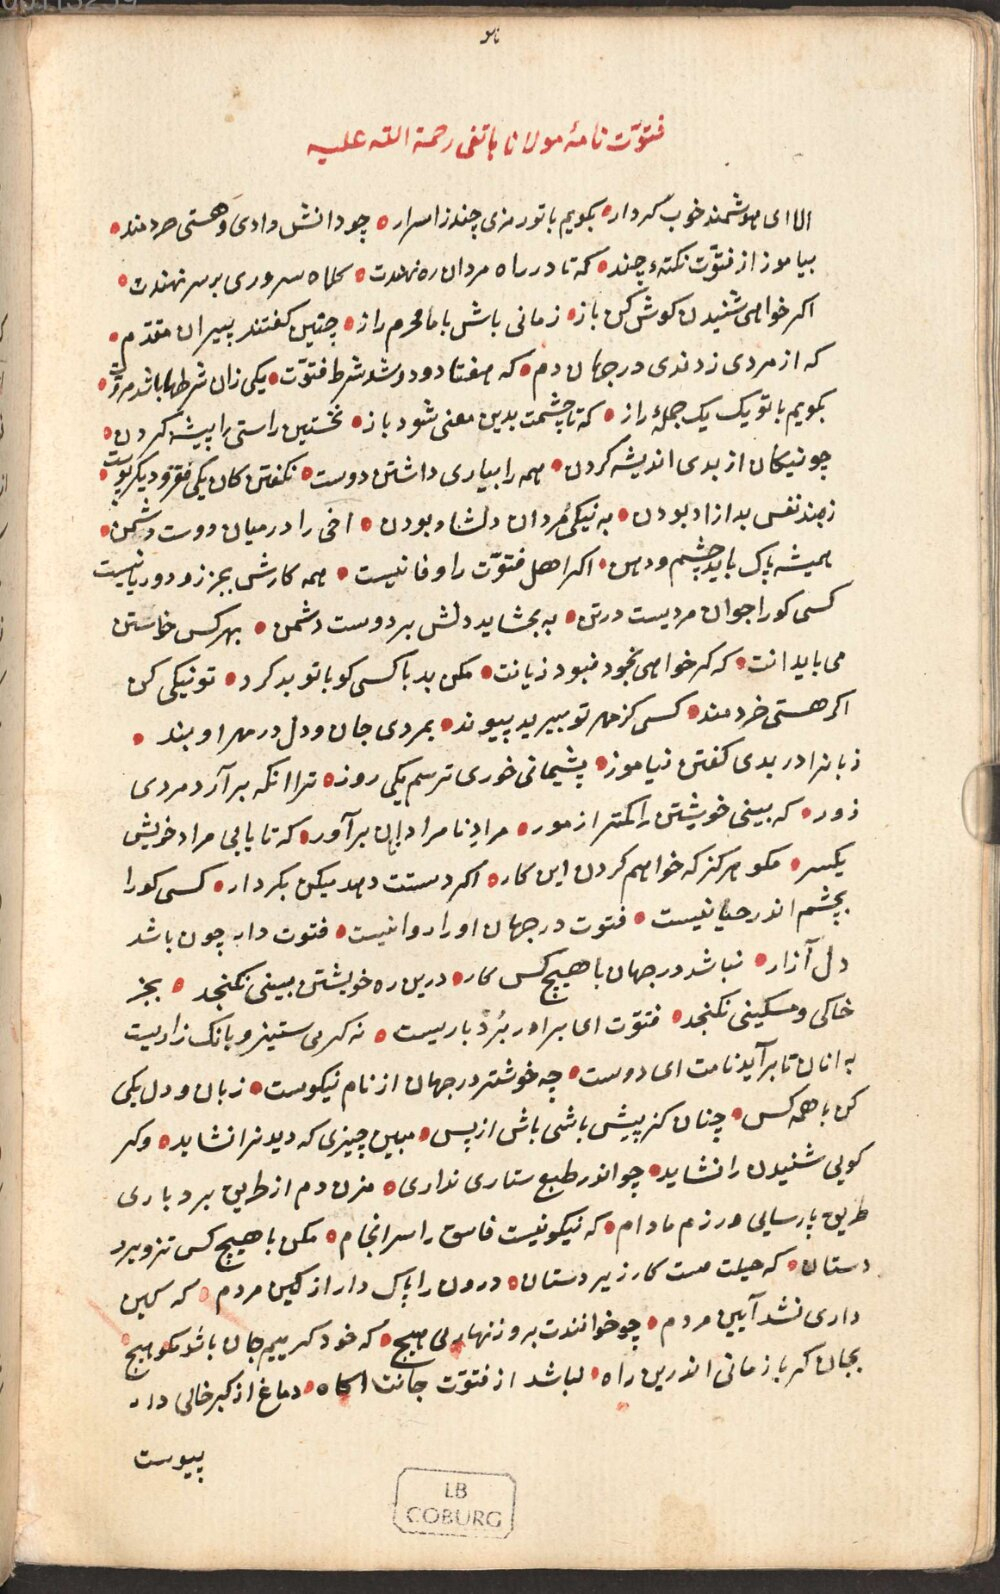 فتوّت نامهٔ مولانا هاتفی رحمة الله علیه
الا ای هوشمند خوب کردار • بکویم با تو رمزی چند ز اسرار • چو دانش دادی و هستی خردمند •
بیاموز از فتوّت نکتهٔ چند • که تا در راه مردان ره نهندت • کلاه سروری بر سر نهندت •
اکر خواهی شنیدن کوش کن باز • زمانی باش با ما محرم راز • چنین کفتند پیران مقدّم •
که از مردی زدندی در جهان دم • که هفتاد و دو شد شرط فتوّت • یکی زان شرطها باشد مروّت •
بکویم با تو یک یک جملهٔ راز • که تا چشمت بدین معنی شود باز • نخستین راستی را پیشه کردن •
چو نیکان از بدی اندیشه کردن • همه را بیاری داشتن دوست • نکفتن کان یکی مغز و دیکر پوست •
ز بند نفس بد ازاد بودن • به نیکی مردان دلشاد بودن • اخی را در میان دوست و دشمن •
همیشه پاک باید چشم و دهن • اکر اهل فتوّت را وفا نیست • همه کارش بجز زو دو ریا نیست
کسی کو را جوان مردیست در تن • به بخشاید دلش بر دوست و دشمن • بهر کس خواستن
می باید انت • که کر خواهی بخود نبود زیانت • مکن بد با کسی کو با تو بد کرد • تو نیکی کن
اکر هستی خردمند • کسی کز مهر تو ببرید پیوند • بمردی جان و دل در مهر او بند •
زبانرا در بدی کفتن نیاموز • پشیمانی خوری ترسم یکی روز • ترا انکه برآرد مردی
زور • که بینی خویشتن را کمتر از مور • مراد نامرادان برآور • که تا یابی مراد خویش
یکسر • مکو هرکز که خواهم کردن این کار • اکر دستت دهد میکن بکردار • کسی کو را
بچشم اندر حیا نیست • فتوت در جهان او را روا نیست • فتوت دار چون باشد
دل آزار • نباشد در جهان با هیچ کس کار • درین ره خویشتن بینی نکنجد • بجز
خاکی و مسکینی نکنجد • فتوّت ای برادر بُرد باریست • نه کرمی ستیز و بانک زاریست
به انان تا برآید نامت ای دوست • چه خوشتر در جهان از نام نیکوست • زبان و دل یکی
کن با همه کس • چنان کز پیش باشی باش از پس • مبین چیزی که دیدنرا نشاید • وکر
کویی شنیدن را نشاید • چو اندر طبع ستاری نداری • مزن دم از طریق برد باری
طریق پارسایی ورزم مادام • که نیکو نیست فاسق را سرانجام • مکن با هیچ کس تزویر د
دستان • که حیلت هست کار زیر دستان • درون را پاک دار از کین مردم • که کین
داری نشد آیین مردم • چو خوانندت برو زنهار می هیچ • که خود کر بیم جان باشد مکو هیچ
بجان کر باز مانی اندرین راه • نباشد از فتوّت جانت اکاه • دماغ از کبر خالی دار
پیوست
LB
COBURG